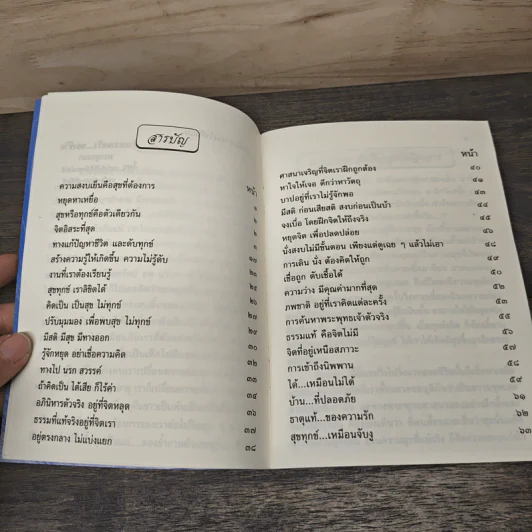 สารบัญ
หน้า
ความสงบเย็นคือสุขที่ต้องการ ๑
หยุดหาเหยื่อ ๒
สุขหรือทุกข์คือตัวเดียวกัน
จิตอิสระที่สุด
ทางแก้ปัญหาชีวิต และดับทุกข์
สร้างความรู้ให้เกิดขึ้น ความไม่รู้ดับ ๑๗
งานที่เราต้องเรียนรู้ ๒๓
สุขทุกข์ เราลิขิตได้ ๒๕
คิดเป็น เป็นสุข ไม่ทุกข์ ๒๗
ปรับมุมมอง เพื่อพบสุข ไม่ทุกข์ ๒๙
มีสติ มีสุข มีทางออก ๓๐
รู้จักหยุด อย่าเชื่อความคิด ๓๒
ทางไป นรก สวรรค์ ๓๓
ถ้าคิดเป็น ได้เสีย ก็ไร้ค่า ๓๔
อภินิหารตัวจริง อยู่ที่จิตหลุด ๓๖
ธรรมที่แท้จริงอยู่ที่จิตเรา ๓๗
อยู่ตรงกลาง ไม่แบ่งแยก ๓๘
หน้า
ศาสนาเจริญที่จิตเราฝึกถูกต้อง ๔๐
หาใจให้เจอ ดีกว่าหาวัตถุ ๔๑
บาปอยู่ที่เราไม่รู้จักพอ ๔๓
มีสติ ก่อนเสียสติ สงบก่อนเป็นบ้า ๔๔
จงเบื่อ โดยฝึกจิตให้ถึงจริง ๔๕
หยุดจิต เพื่อปลดปล่อย ๔๖
นั่งสงบไม่มีขั้นตอน เพียงแต่ดูเฉย ๆ แล้วไม่เอา ๔๘
การเดิน นั่ง ต้องคิดให้ถูก ๔๙
เชื่อถูก ดับเชื้อได้ ๕๐
ความว่าง มีคุณค่ามากที่สุด ๕๒
ภพชาติ อยู่ที่เราคิดแต่ละครั้ง ๕๓
การค้นหาพระพุทธเจ้าตัวจริง ๕๕
ธรรมแท้ คือจิตไม่มี ๕๖
จิตที่อยู่เหนือสภาวะ ๕๗
การเข้าถึงนิพพาน ๕๘
ได้...เหมือนไม่ได้ ๕๙
บ้าน...ที่ปลอดภัย ๖๑
ธาตุแท้...ของความรัก ๖๒
สุขทุกข์...เหมือนจับงู ๖๓